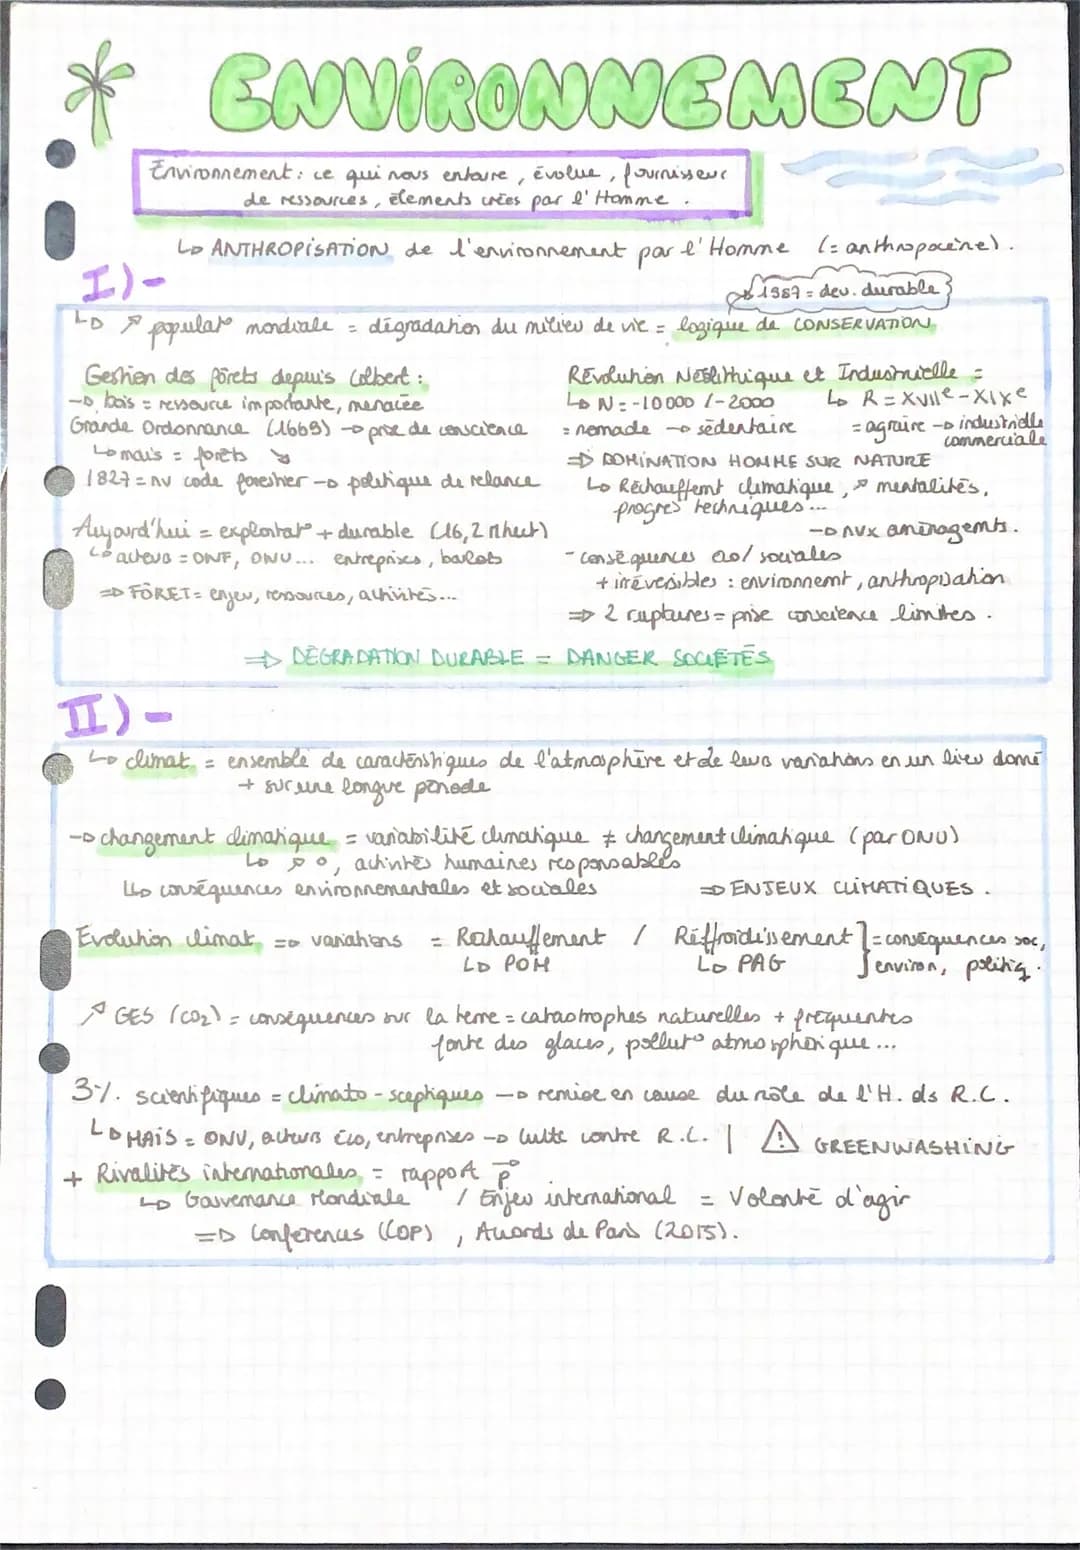 ENVIRONNEMENT
Environnement : ce qui nous entoure, évolue, fournisseur
de ressources, élements crées par l'Homme.
↳ ANTHROPISATION de l'environnement par l'Homme (= anthropocène).
I)-
1987 = dev. durable
↳ ↗ populat° mondiale = dégradation du milieu de vie = logique de CONSERVATION
Gestion des fôrets depuis Colbert :
→ bois = ressource importante, menacée
Grande Ordonnance (1669) → prise de conscience
↳ mais = forêts ↘
1827 = nv code forestier → politique de relance
Aujourd'hui = exploitat° + durable (16,2 M hect)
↳ acteurs = ONF, ONU... entreprises, barlob
⇒ FÔRET = enjeu, ressources, activités...
Révolution Néolithique et Industrielle =
↳ N = -10 000 / -2000 ↳ R = XVIIIe - XIXe
= nomade → sédentaire = agraire → industrielle
commerciale
⇒ DOMINATION HOMME SUR NATURE
↳ Réchauffemt climatique, ↗ mentalités,
progrès techniques...
→ nvx aménagemts.
- conséquences éco/sociales
+ irréversibles : environnemt, anthropisation
⇒ 2 ruptures = prise conscience limites.
⇒ DÉGRADATION DURABLE = DANGER SOCIÉTÉS
II)-
↳ climat = ensemble de caractéristiques de l'atmosphère et de leurs variations en un lieu donné
+ sur une longue période
→ changement climatique = variabilité climatique ≠ changement climatique (par ONU)
↳ ↗ °, activités humaines responsables
↳ conséquences environnementales et sociales ⇒ ENJEUX CLIMATIQUES.
Evolution climat ⇒ variations = Réchauffement / Réffroidissement ] = conséquences soc,
↳ POM ↳ PAG environ, politiq.
↗ GES (CO2) = conséquences sur la terre = catastrophes naturelles + fréquentes
fonte des glaces, pollut° atmosphérique...
3%. scientifiques = climato-sceptiques → remise en cause du rôle de l'H. ds R.C.
↳ MAIS = ONU, acteurs éco, entreprises → lutte contre R.C. | ⚠ GREENWASHING
+ Rivalités internationales = rapport p→
↳ Gouvernance Mondiale / Enjeu international = Volonté d'agir
⇒ Conférences (COP), Accords de Paris (2015).